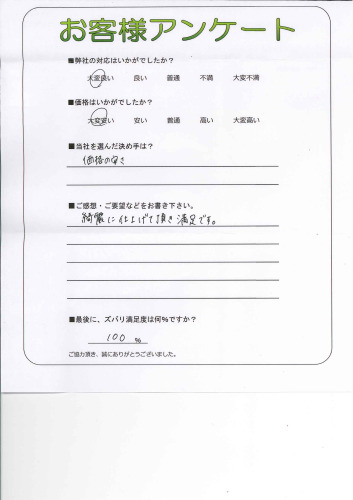 お客様アンケート
■弊社の対応はいかがでしたか？
大変良い 良い 普通 不満 大変不満
■価格はいかがでしたか？
大変安い 安い 普通 高い 大変高い
■当社を選んだ決め手は？
価格の安さ
■ご感想・ご要望などをお書き下さい。
綺麗に仕上げて頂き満足です。
■最後に、ズバリ満足度は何%ですか？
100 %
ご協力頂き、誠にありがとうございました。